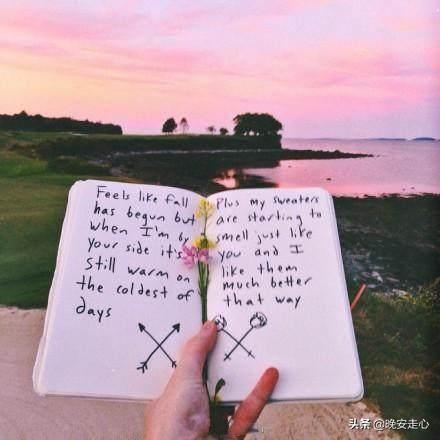 Feels like fall
has begun but
when I'm by
your side it's
still warm on
the coldest of
days
Plus my sweaters
are starting to
smell just like
you and I
like them
much better
that way
头条 @晚安走心